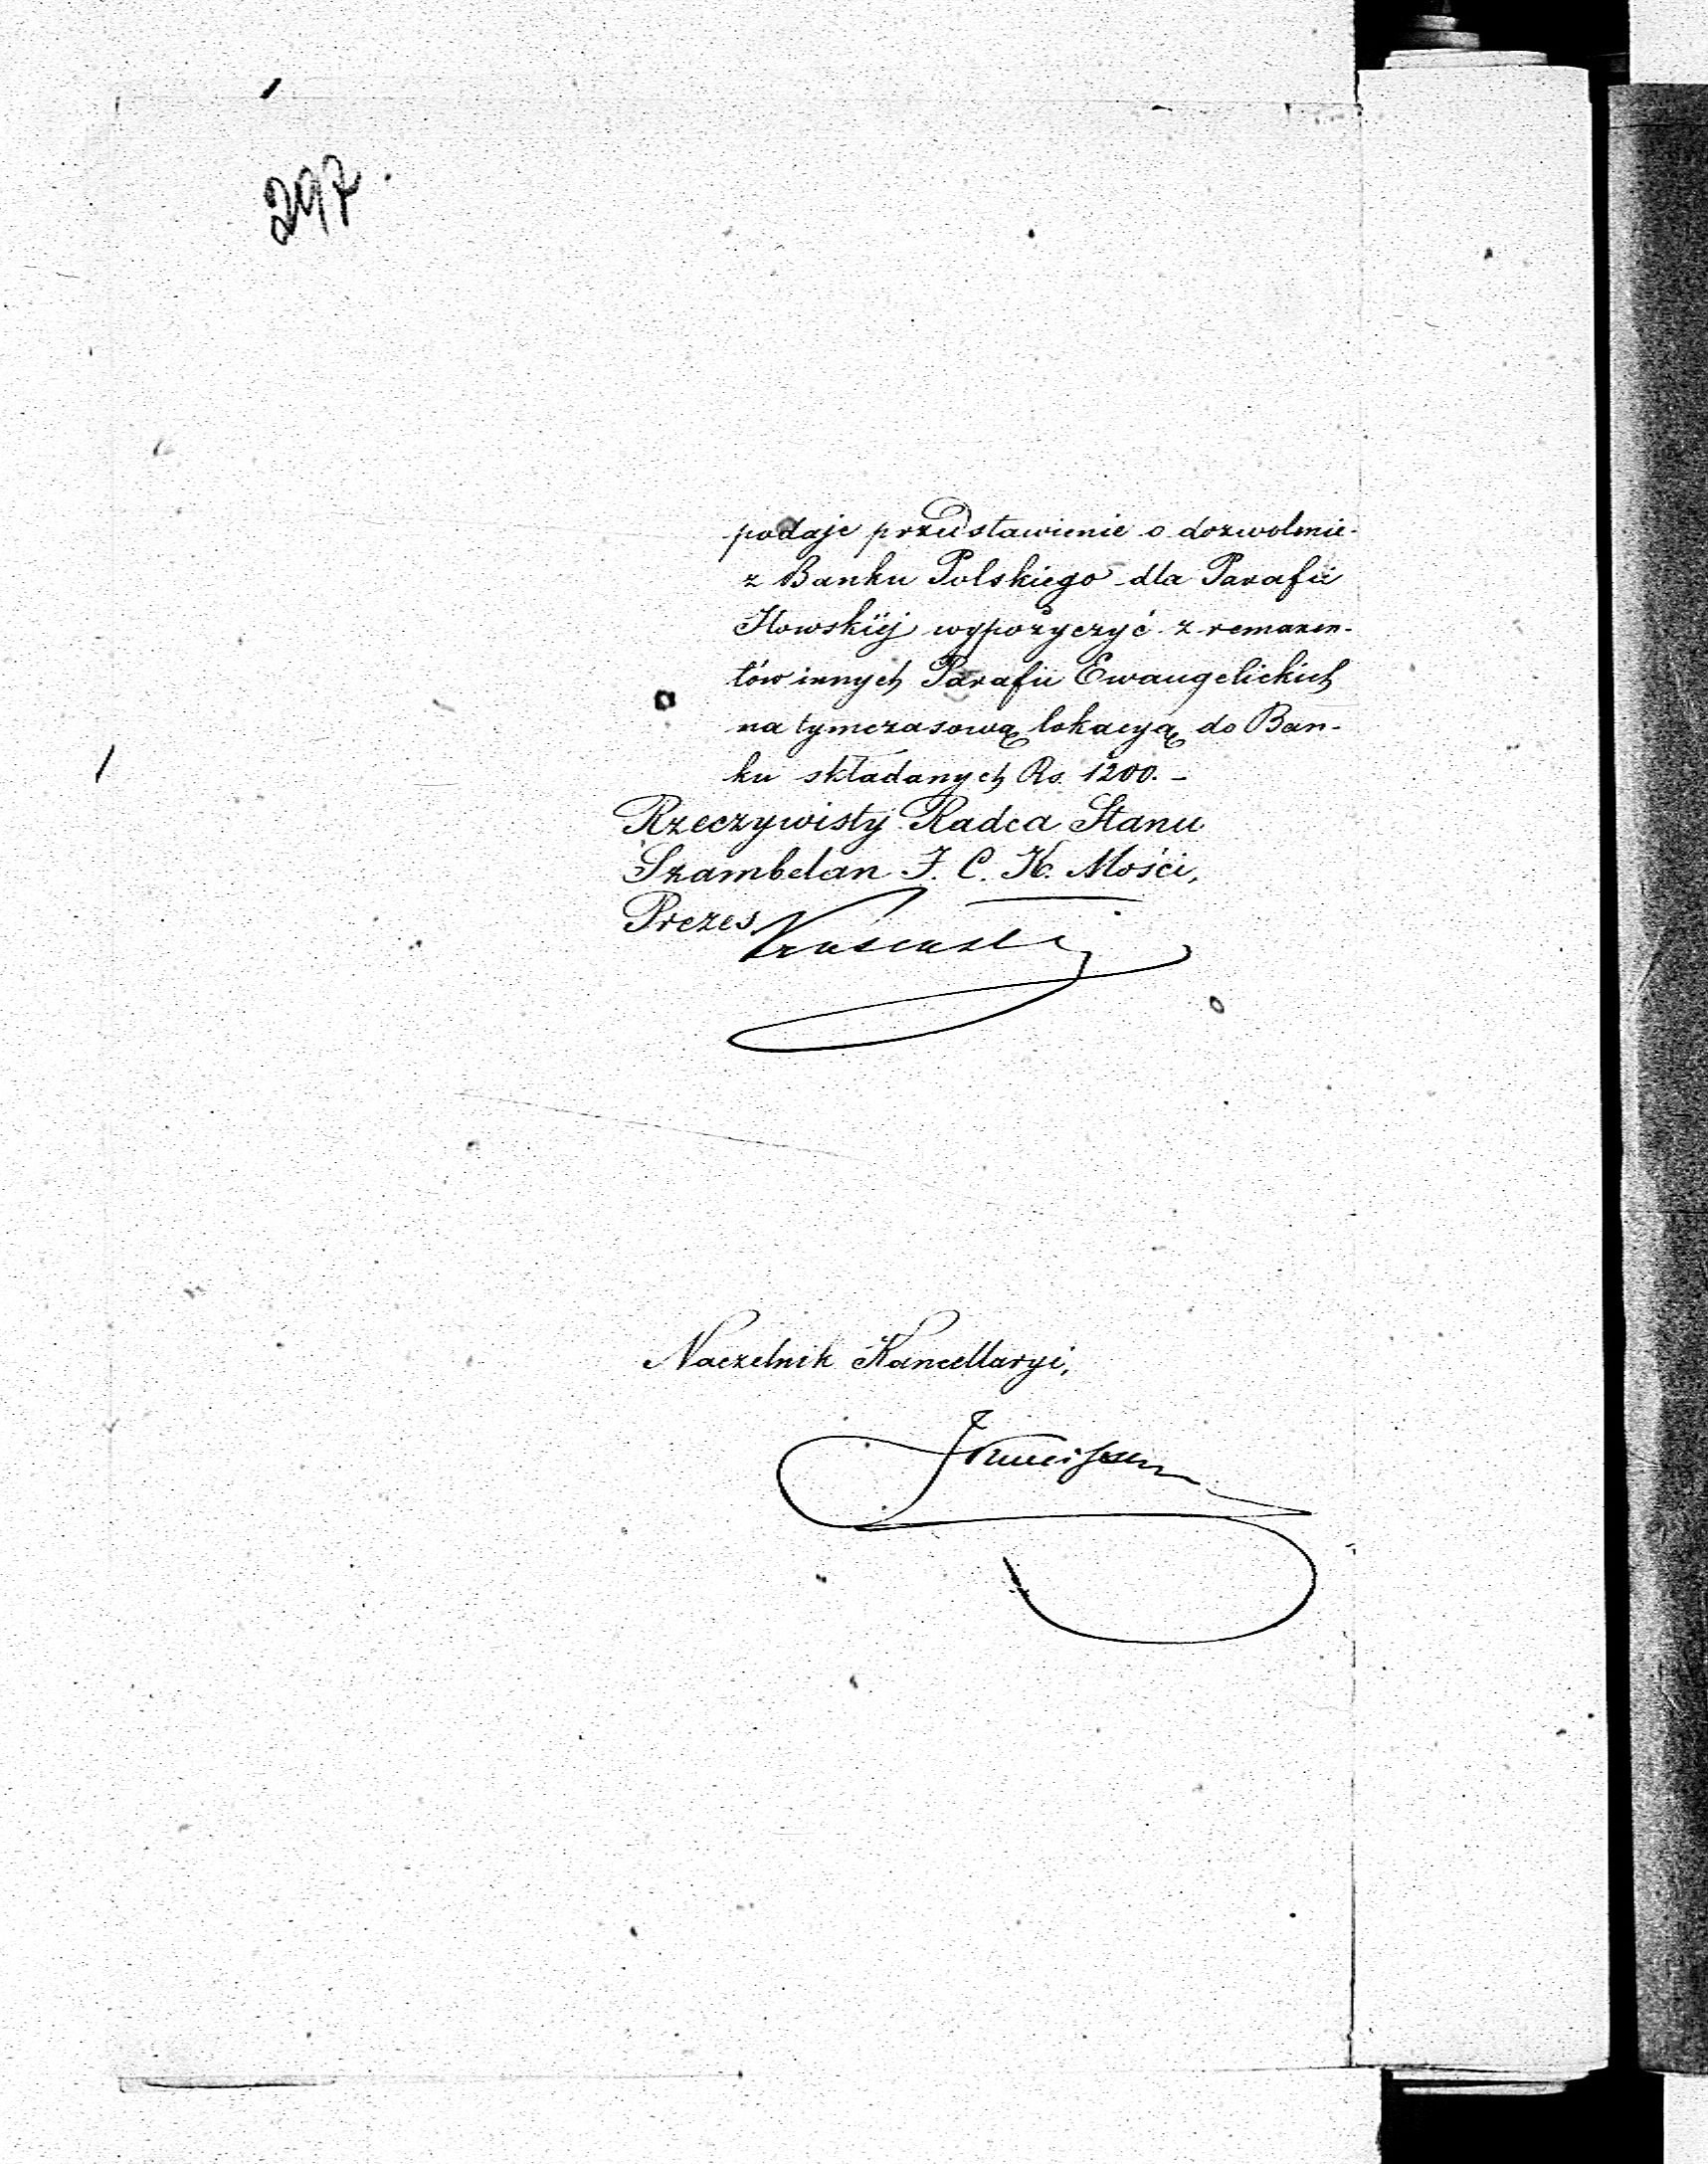 297.
podaje przedstawienie o dozwolenie
z Banku Polskiego dla Parafii
Iłowskiéj wypożyczyć z remanen-
tów innych Parafii Ewangelickich
na tymczasową lokacyą do Ban-
ku składanych Rs. 1200. –
Rzeczywisty Radca Stanu
Szambelan J. C. K. Mości,
Prezes
Naczelnik Kancellaryi,